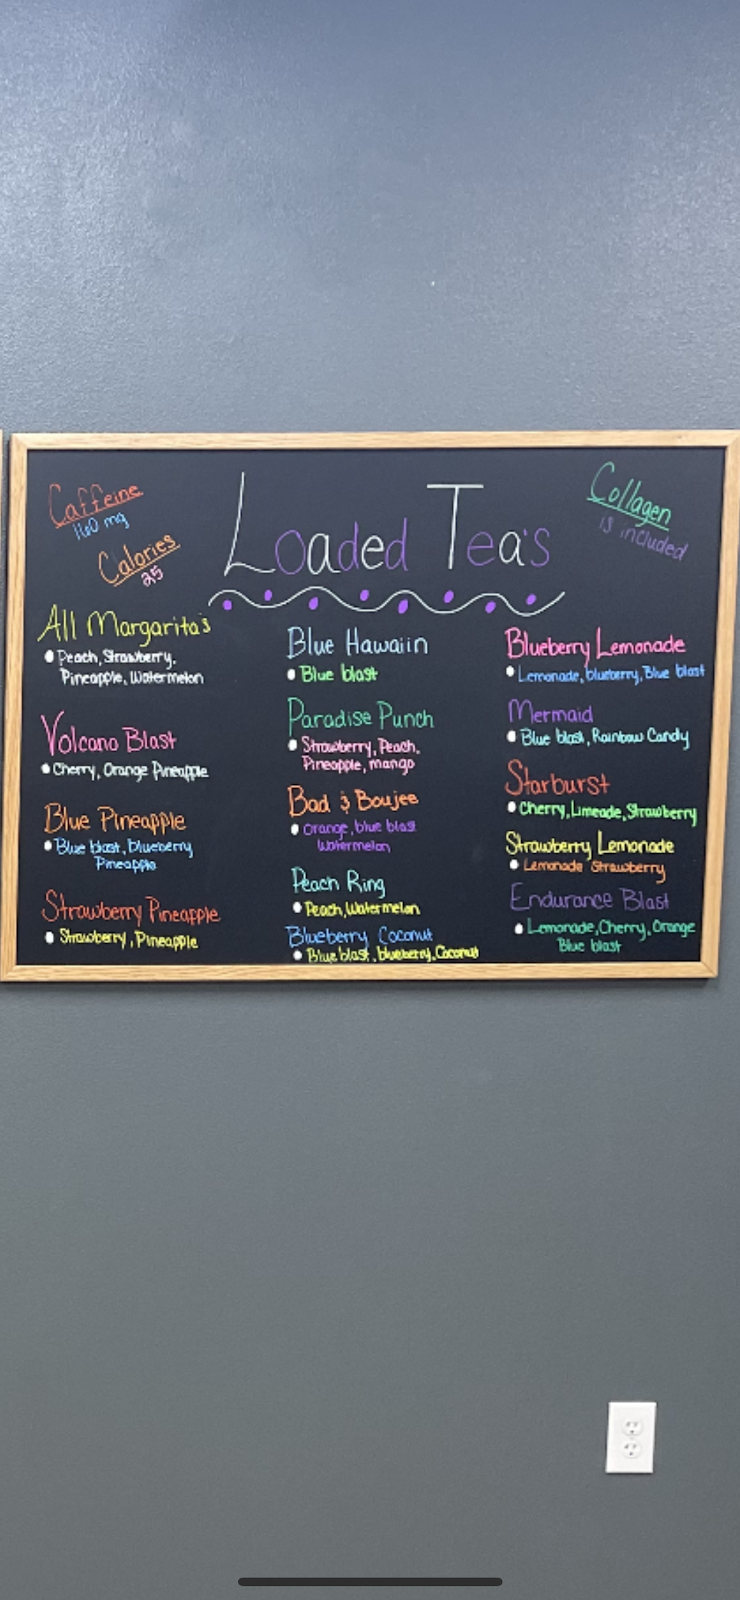 Caffeine
160 mg
Calories
25
Loaded Tea's
Collagen
is included
All Margarita's
Peach, Strawberry,
Pineapple, Watermelon
Volcano Blast
Cherry, Orange Pineapple
Blue Pineapple
Blue blast, blueberry
Pineapple
Strawberry Pineapple
Strawberry, Pineapple
Blue Hawaiin
Blue blast
Paradise Punch
Strawberry, Peach,
Pineapple, mango
Bad & Boujee
Orange, blue blast
Watermelon
Peach Ring
Peach, Watermelon
Blueberry Coconut
Blue blast, blueberry, Coconut
Blueberry Lemonade
Lemonade, blueberry, Blue blast
Mermaid
Blue blast, Rainbow Candy
Starburst
Cherry, Limeade, Strawberry
Strawberry Lemonade
Lemonade Strawberry
Endurance Blast
Lemonade, Cherry, Orange
Blue blast